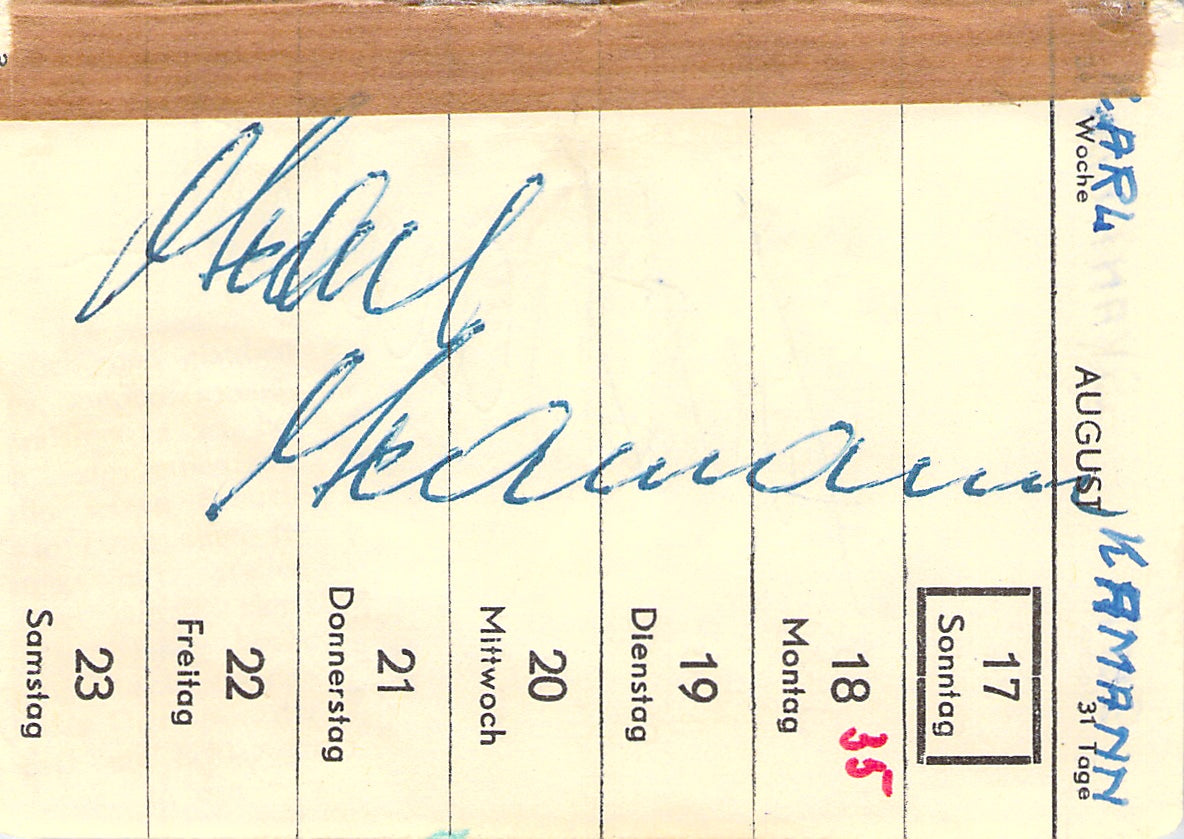 CARL KAMANN
Woche AUGUST 31 Tage
17 Sonntag
18 Montag
35
19 Dienstag
20 Mittwoch
21 Donnerstag
22 Freitag
23 Samstag
Karl
Kamann